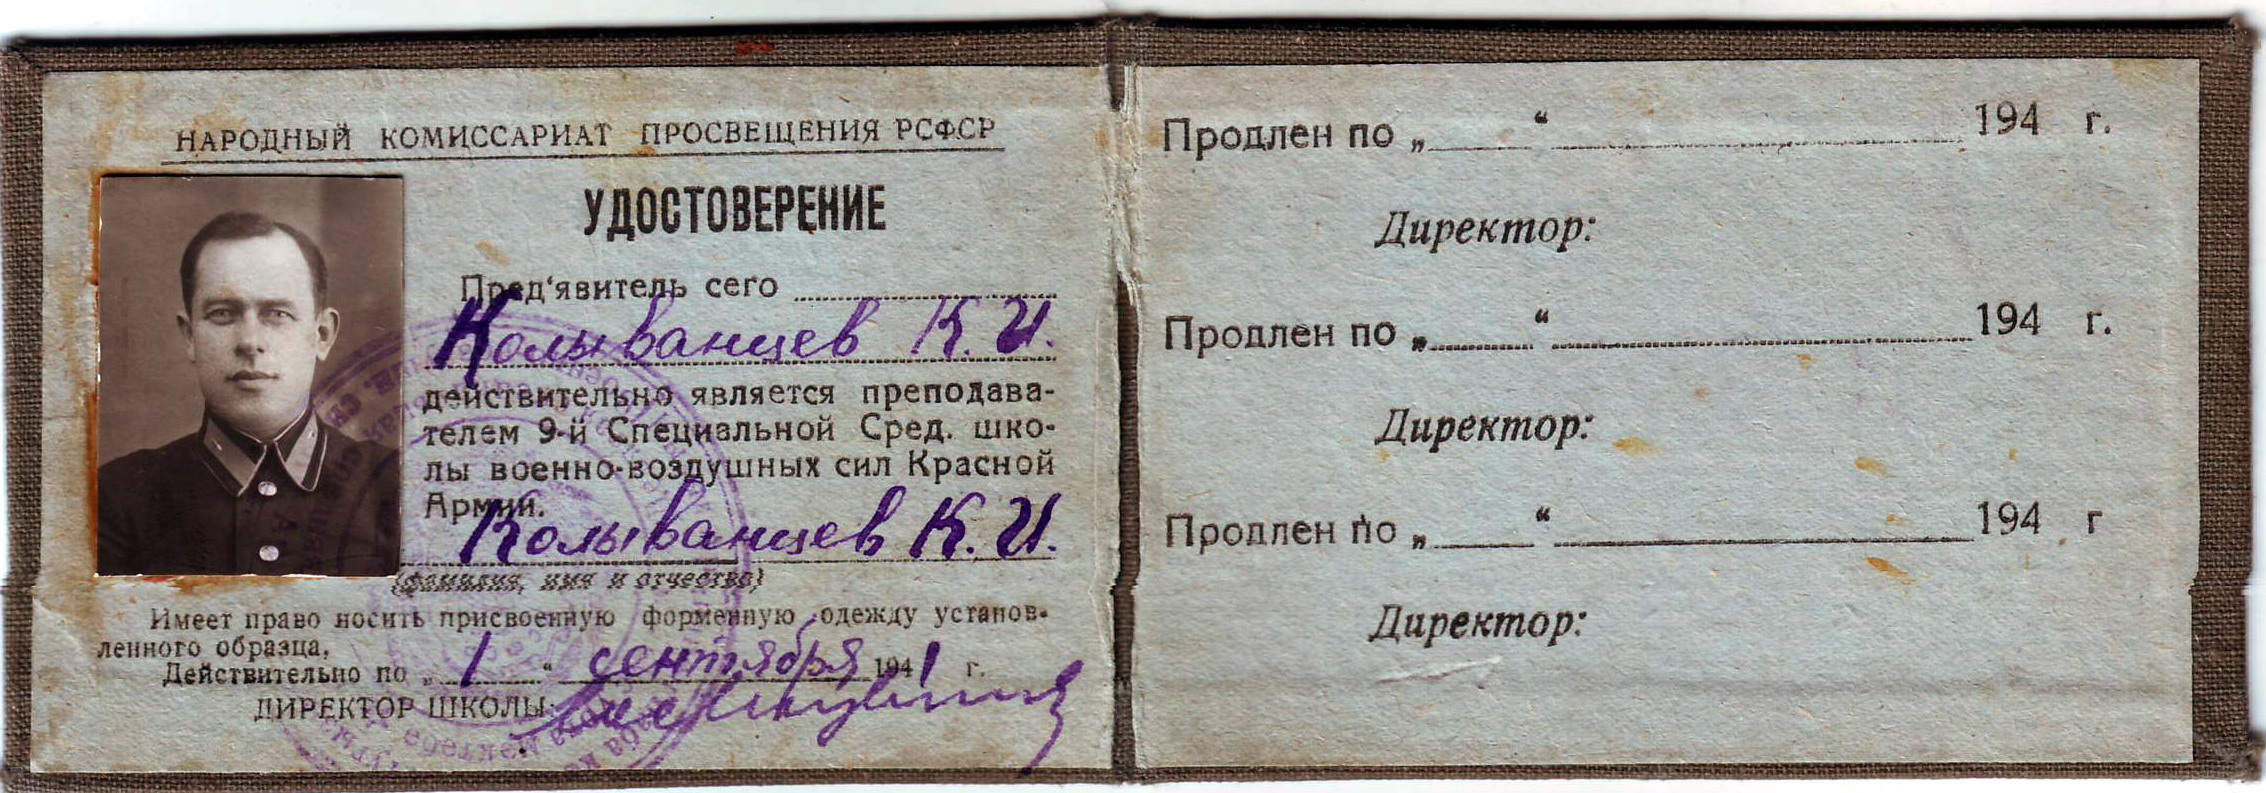 НАРОДНЫЙ КОМИССАРИАТ ПРОСВЕЩЕНИЯ РСФСР
УДОСТОВЕРЕНИЕ
Пред'явитель сего
Колыванцев К. И.
действительно является преподава-
телем 9-й Специальной Сред. шко-
лы военно-воздушных сил Красной
Армии.
Колыванцев К. И.
(фамилия, имя и отчество)
Имеет право носить присвоенную форменную одежду установ-
ленного образца.
Действительно по „ 1 “ сентября 1941 г.
ДИРЕКТОР ШКОЛЫ:
Продлен по „ “ 194 г.
Директор:
Продлен по „ “ 194 г.
Директор:
Продлен по „ “ 194 г
Директор: